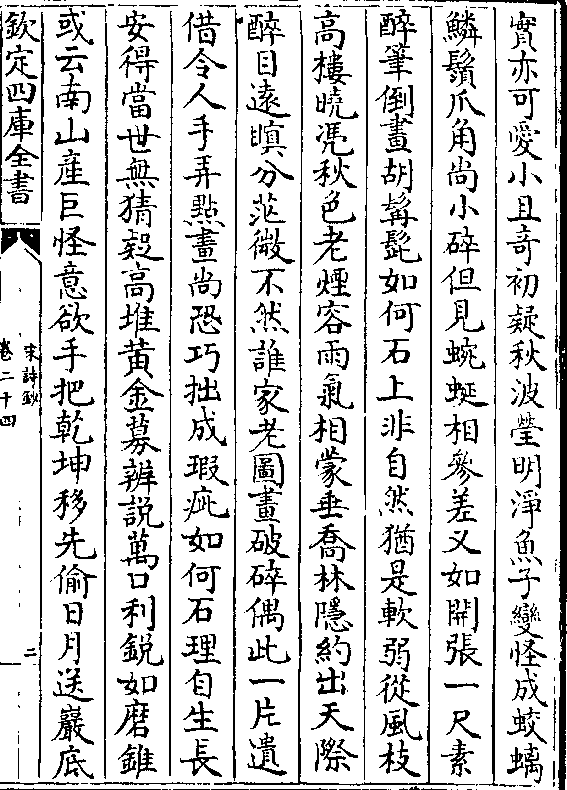 實亦可愛小且竒初疑秋波瑩明淨魚子變怪成蛟螭
鱗鬚爪角尚小碎但見蜿蜒相參差又如開張一尺素
醉筆倒畫胡髯髭如何石上非自然猶是軟弱從風枝
高樓曉凭秋色老煙容雨氣相蒙垂喬林隱約出天際
醉目遠瞋分茫微不然誰家老圖畫破碎偶此一片遺
借令人手弄㸃畫尚恐巧拙成瑕疵如何石理自生長
安得當世無猜疑高堆黄金募辨説萬口利鋭如磨錐
或云南山産巨怪意欲手把乾坤移先偷日月送巖底
欽定四庫全書
宋詩鈔
卷二十四
二